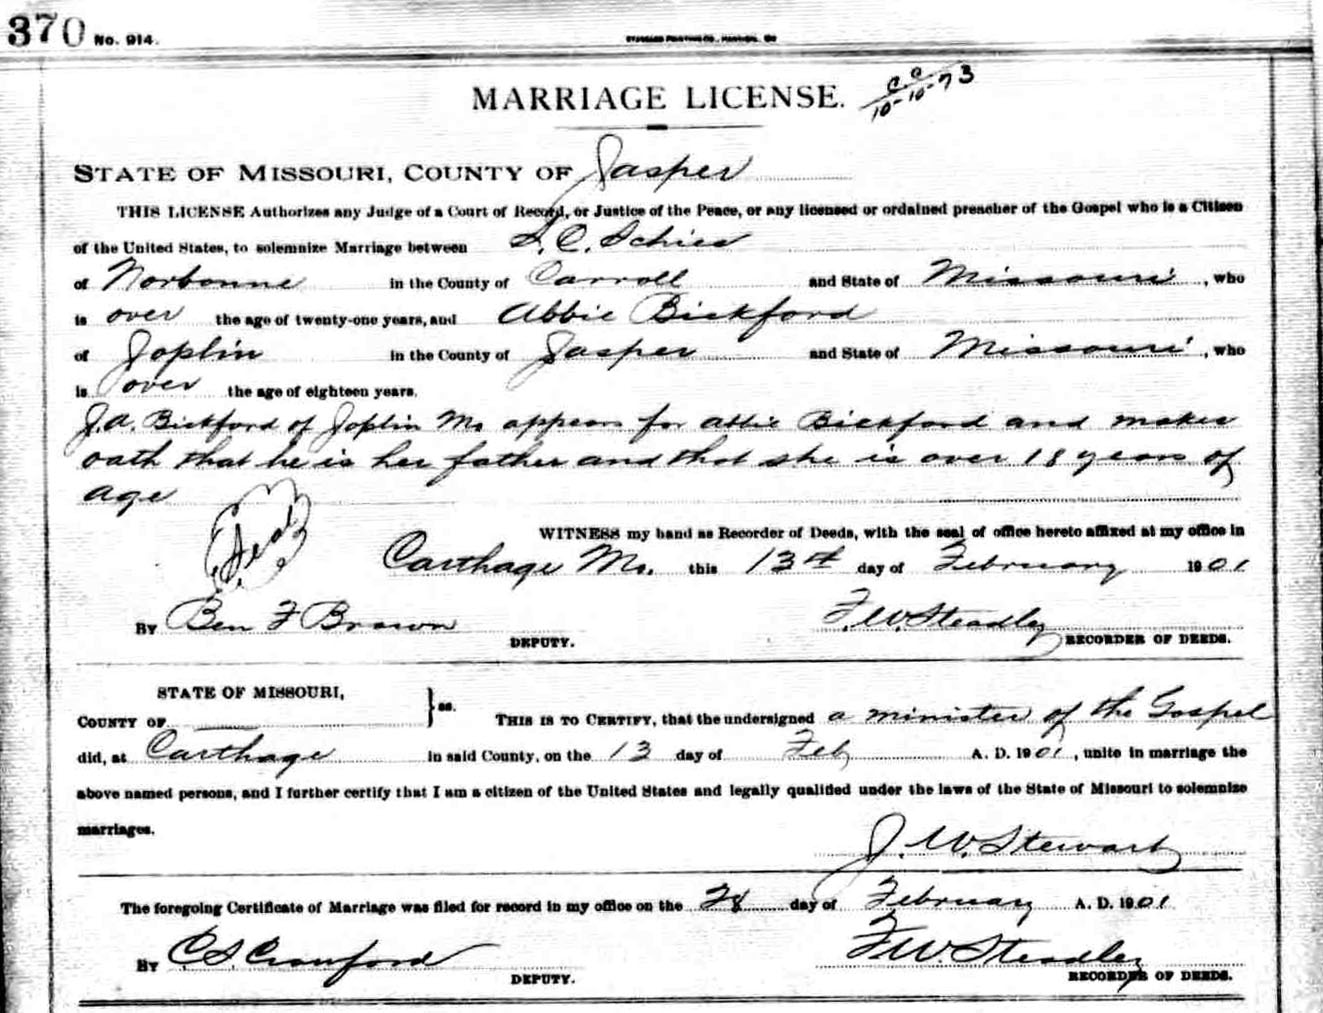 370 No. 914.
MARRIAGE LICENSE.
c.c.
10-10-73
STATE OF MISSOURI, COUNTY OF Jasper
THIS LICENSE Authorizes any Judge of a Court of Record, or Justice of the Peace, or any licensed or ordained preacher of the Gospel who is a Citizen
of the United States, to solemnize Marriage between C. Schies
of Norbonne in the County of Carroll and State of Missouri, who
is over the age of twenty-one years, and Abbie Bickford
of Joplin in the County of Jasper and State of Missouri, who
is over the age of eighteen years.
J.A. Bickford of Joplin Mo appears for abbie Bickford and makes
oath that he is her father and that she is over 18 years of
age
Seal
WITNESS my hand as Recorder of Deeds, with the seal of office hereto affixed at my office in
Carthage Mo. this 13th day of February 1901
By Ben F Brown F.W. Steadley
DEPUTY. RECORDER OF DEEDS.
STATE OF MISSOURI,
COUNTY OF } ss. THIS IS TO CERTIFY, that the undersigned a minister of the Gospel
did, at Carthage in said County, on the 13 day of Feb A. D. 1901, unite in marriage the
above named persons, and I further certify that I am a citizen of the United States and legally qualified under the laws of the State of Missouri to solemnize
marriages.
J. W. Stewart
The foregoing Certificate of Marriage was filed for record in my office on the 28 day of February A. D. 1901
By C S Crawford F.W. Steadley
DEPUTY. RECORDER OF DEEDS.